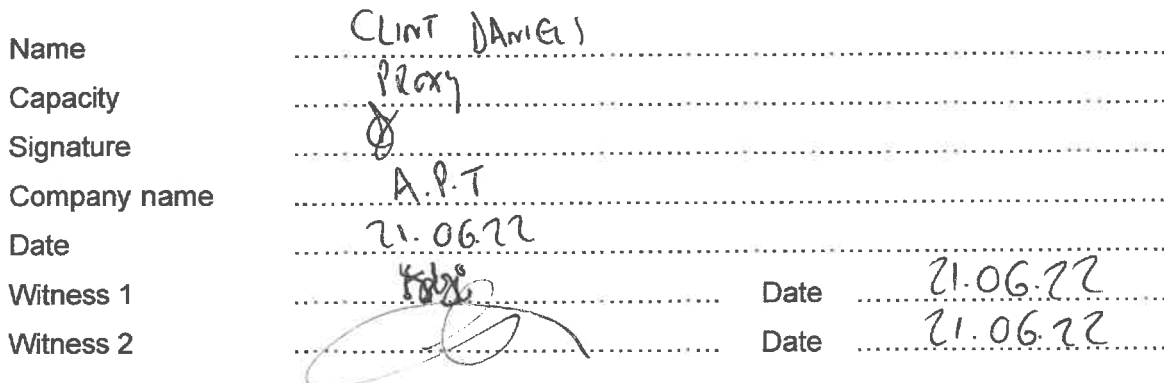 Name CLINT DANIELS
Capacity PROXY
Signature
Company name A.P.T
Date 21.06.22
Witness 1 Date 21.06.22
Witness 2 Date 21.06.22